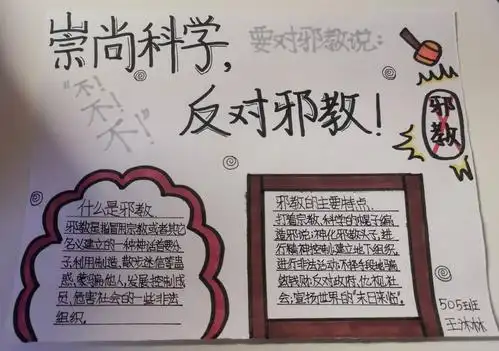 崇尚科学，
要对邪教说：
"不！
不！
不！"
反对邪教！
邪教
什么是邪教
邪教是指冒用宗教或者其它
名义建立的一种神话首要分
子,利用制造,散布迷信等蛊
惑,蒙骗他人,发展,控制成
员,危害社会的一些非法
组织。
邪教的主要特点
打着宗教、科学的幌子编
造邪说；神化邪教头子,进
行精神控制；建立地下组织,
进行非法活动；不择手段地骗
钱敛财；反对政府,仇视社
会；宣扬世界的"末日来临"。
505班
王沐林